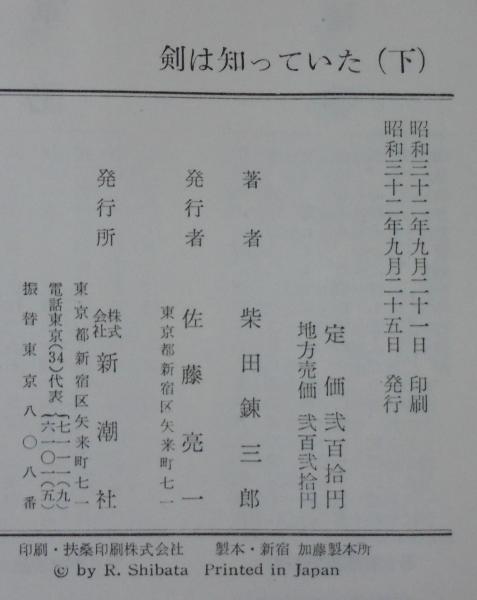 剣は知っていた(下)
昭和三十二年九月二十一日 印刷
昭和三十二年九月二十五日 発行
定価 弐百拾円
地方売価 弐百弐拾円
著者 柴田錬三郎
発行者 佐藤亮一
東京都新宿区矢来町七一
発行所 株式会社 新潮社
東京都新宿区矢来町七一
電話東京(34)代表{七一一一(九)六一〇一(五)}
振替東京八〇八番
印刷・扶桑印刷株式会社 製本・新宿 加藤製本所
© by R. Shibata Printed in Japan